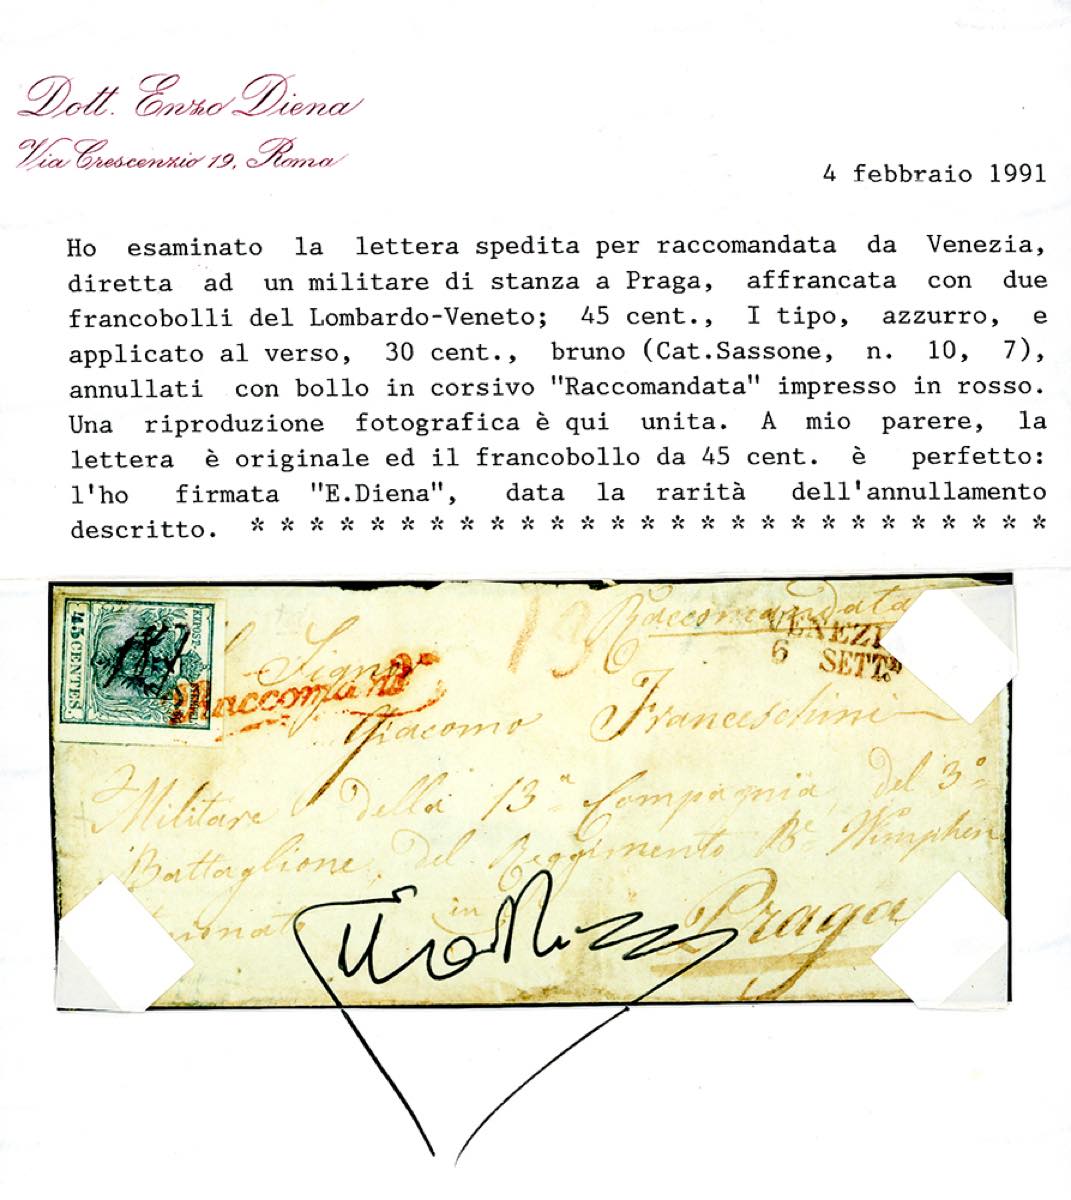 Dott. Enzo Diena
Via Crescenzio 19, Roma
4 febbraio 1991
Ho esaminato la lettera spedita per raccomandata da Venezia,
diretta ad un militare di stanza a Praga, affrancata con due
francobolli del Lombardo-Veneto; 45 cent., I tipo, azzurro, e
applicato al verso, 30 cent., bruno (Cat.Sassone, n. 10, 7),
annullati con bollo in corsivo "Raccomandata" impresso in rosso.
Una riproduzione fotografica è qui unita. A mio parere, la
lettera è originale ed il francobollo da 45 cent. è perfetto:
l'ho firmata "E.Diena", data la rarità dell'annullamento
descritto. * * * * * * * * * * * * * * * * * * * * * * * * * * *
45 CENTES.
13
Raccomandata
VENEZI
6 SETT.
Raccomand
Giacomo Franceschini
Militare della 13ª Compagnia del 3º
Battaglione, del Reggimento Bº Wimphen
in Praga